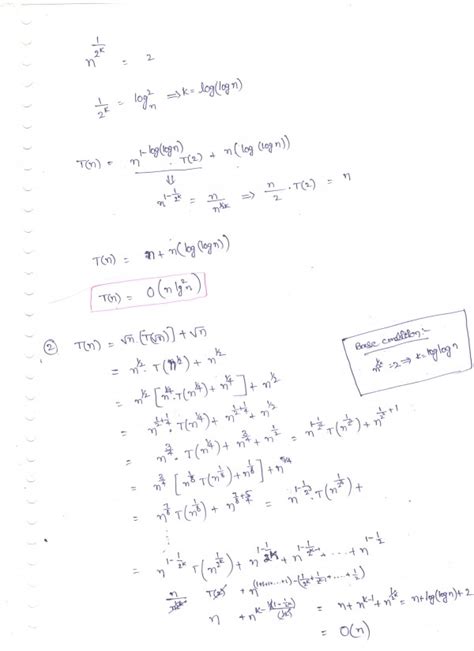 n^{1/2^k} = 2
1/2^k = log_n^2 ⇒ k = log(log n)
T(n) = n^{1-log(log n)} . T(2) + n(log(log n))
⇓
n^{1-1/2^k} = n/n^{1/2^k} ⇒ n/2 . T(2) = n
T(n) = n + n(log(log n))
T(n) = O(n lg^2 n)
② T(n) = √n . [T(√n)] + √n
Base condition:-
n^{1/2^k} = 2 ⇒ k = log log n
= n^{1/2} . T(n^{1/2}) + n^{1/2}
= n^{1/2} [n^{1/4} . T(n^{1/4}) + n^{1/4}] + n^{1/2}
= n^{1/2+1/4} . T(n^{1/4}) + n^{1/2+1/4} + n^{1/2}
= n^{3/4} . T(n^{1/4}) + n^{3/4} + n^{1/2} = n^{1-1/2} T(n^{1/2}) + n^{1/2+1}
= n^{3/4} [n^{1/8} T(n^{1/8}) + n^{1/8}] + n^{3/4}
= n^{7/8} T(n^{1/8}) + = n^{1-1/2^3} . T(n^{1/2^3}) +
= n^{1-1/2^k} T(n^{1/2^k}) + n^{1-1/2^k} + n^{1-1/2^{k-1}} + ... + n^{1-1/2}
n T(2) + n^{(1+1+...+1)-(1/2^k+1/2^{k-1}+...+1/2)}
n + n^{k-} = n + n^{k-1} + n^{1/2^k} = n + log(log n) + 2
= O(n)